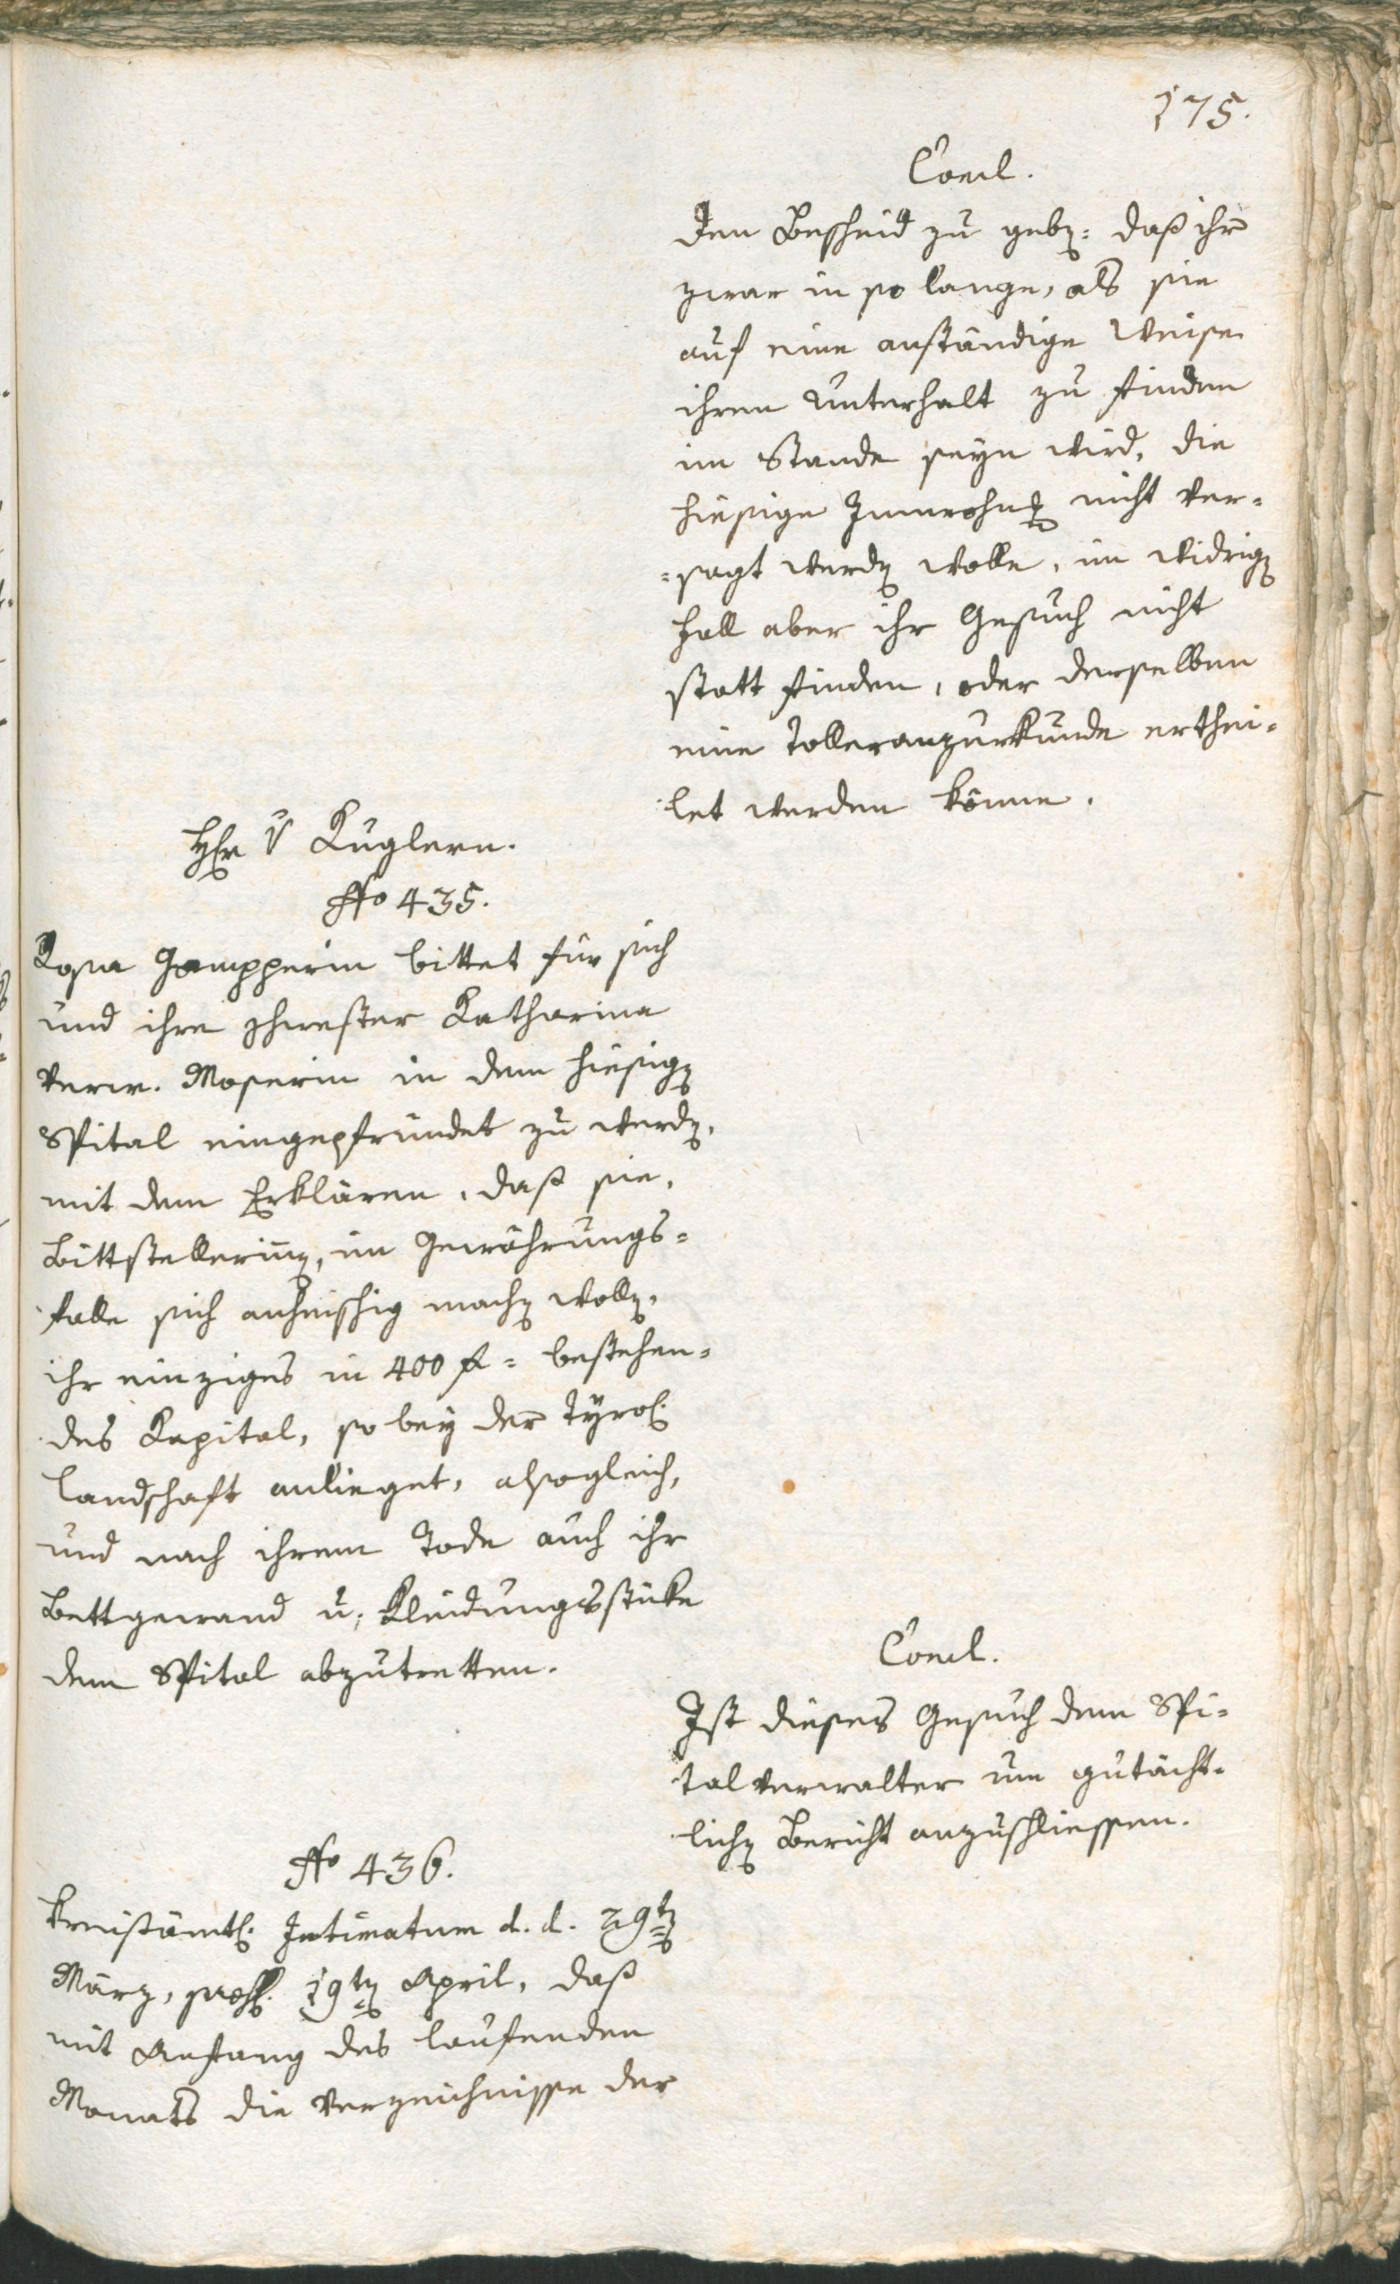 175.
Concl.
den Bescheid zu gebẽ: daß ihr
zwar in so lange, als sie
auf eine anständige Weise
ihren Unterhalt zu finden
im Stande seyn wird, die
hiesige Innwohnũg nicht ver-
=sagt werdẽ wolle, im widrigẽ
Fall aber ihr Gesuch nicht
statt finden, oder derselben
eine Tolleranzurkunde erthei-
let werden könne.
Hr v Kuglern.
No 435.
Rosa Gampperin bittet für sich
und ihre Schwester Katharina
verw. Moserin in dem hiesigẽ
Spital eingepfründet zu werdẽ,
mit dem Erklären, daß sie,
Bittstellerinẽ, im Gewährungs-
falle sich anheischig machẽ wollẽ,
ihr einziges in 400 f = bestehen-
des Kapital, so bey der Tyrol.
Landschaft anlieget, alsogleich,
und nach ihrem Tode auch ihr
Bettgewand u. Kleidungsstüke
dem Spital abzutretten.
Concl.
Ist dieses Gesuch dem Spi-
talverwalter um gutächt-
lichẽ Bericht anzuschliessen.
No 436.
Kreisämtl. Intimatum d. d. 29tẽ
März, præs. 19tẽ April, daß
mit Anfang des laufenden
Monats die Verzeichnisse der